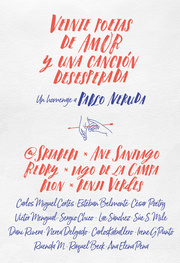 VEINTE POETAS
DE AMOR
Y UNA CANCIÓN
DESESPERADA
Un homenaje a PABLO NERUDA
@SRTABEBI * ANE SANTIAGO
REDRY * IAGO DE LA CAMPA
DION * BENJI VERDES
Carlos Miguel Cortés * Esteban Belmonte * César Poetry
Víctor Monigual * Sergio Chico * Leo Sánchez * Sôe S. Mile
Dani Rivera * Nerea Delgado * Carlos Kaballero * Irene G Punto
Ruanda M * Raquel Beck * Ana Elena Pena